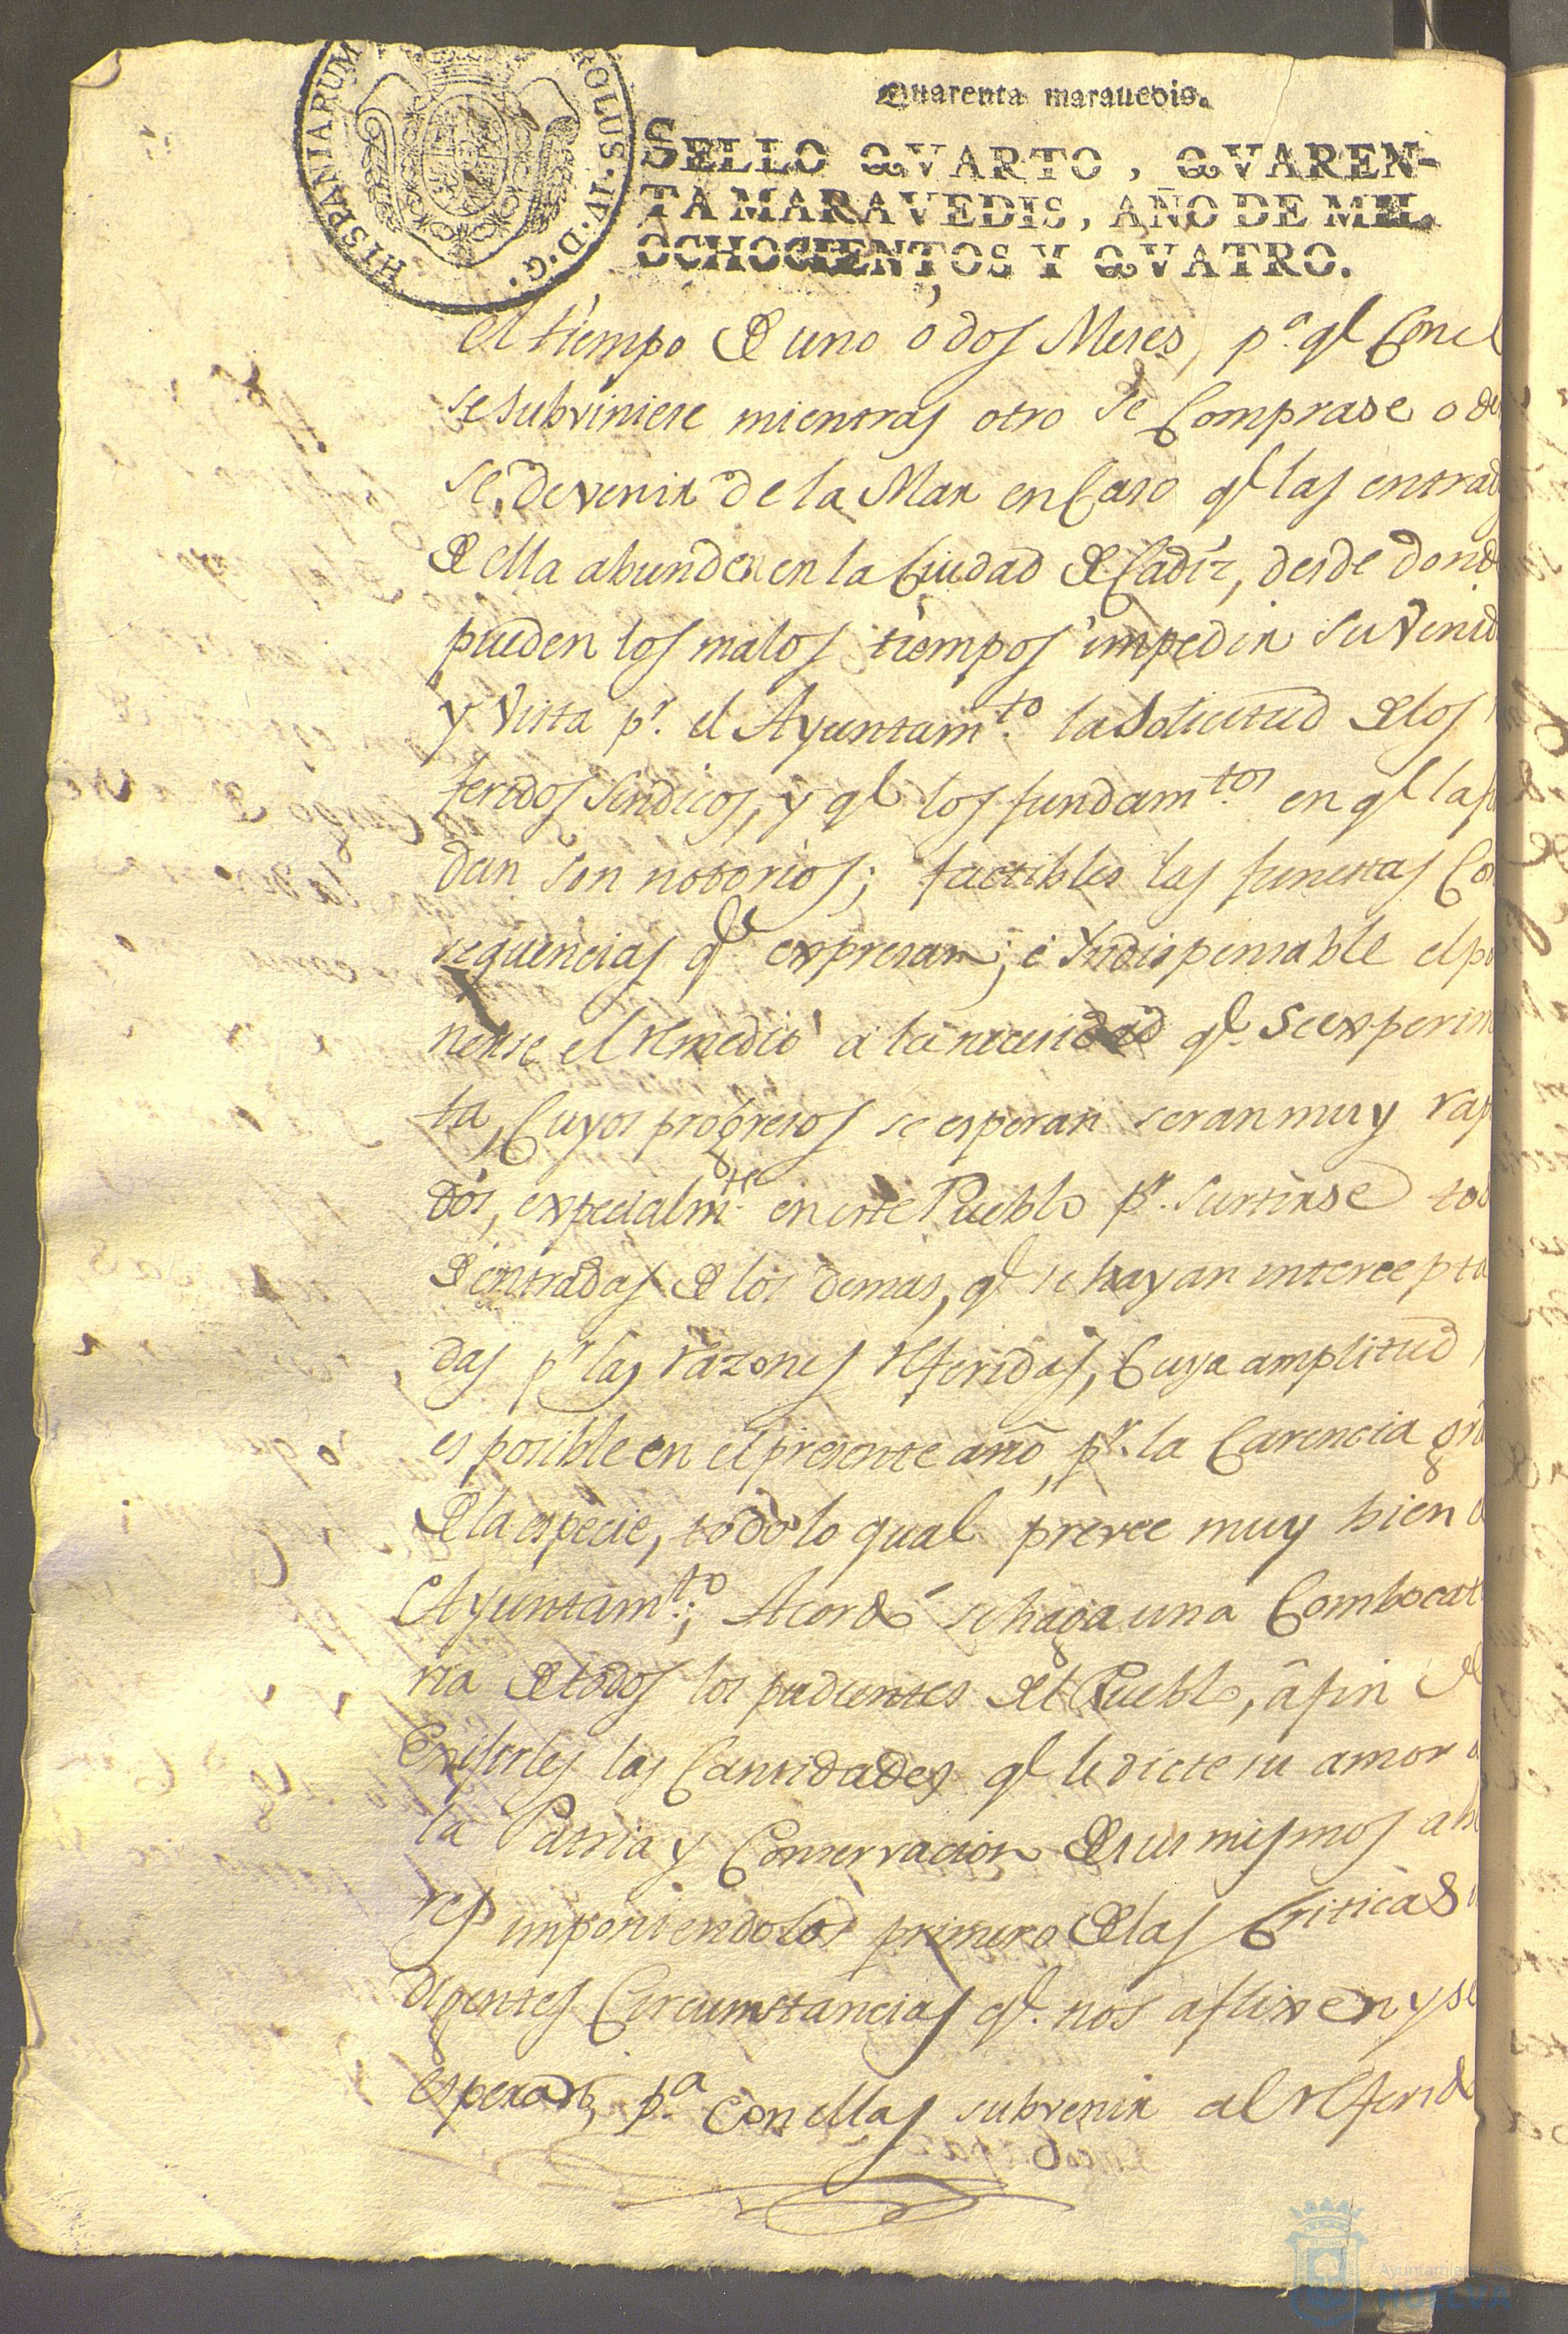 HISPANIARUM
ROLUS·IV·D·G·
Quarenta marauedis.
SELLO QVARTO, QVAREN-
TA MARAVEDIS, AÑO DE MIL
OCHOCIENTOS Y QVATRO.
el tiempo de uno o dos Meses, pª. qe Con el
se subviniese mientras otro se Comprase o de
se, de venir de la Mar en Caso qe las entrad
de ella abunden en la Ciudad de Cadiz, desde dond
pueden los malos tiempos impedir su venid
y Vista pr. el Ayuntamto. la Solicitud de los
feridos Sindicos, y qe los fundamtos. en qe la fu
dan son notorios; factibles las funestas Co
sequencias qe expresan; é Yndispensable el po
nerse el remedio a la necesidad qe. se experim
ta, Cuyos progresos se esperan seran muy rap
dos, expecialmte. en este Pueblo pr. surtirse tod
de entradas de los demas, qe se hayan intercepta
das pr las razones referidas, Cuya amplitud
es posible en el presente año, pr. la Carencia gr
de la especie, todo lo qual prevee muy bien
Ayuntamto.; Acordó se haga una Combocat
ria de todos los pudientes del Pueblo, á fin de
las Cantidades qe le dicte su amor
la Patria y Conservacion de sus mismos ab
res imponiendolos primero de las Criticas
digentes Circumstancias qe. nos aflixen y se
esperan, pª. Con ellas subvenir al referid
Ayuntamie
HUELVA